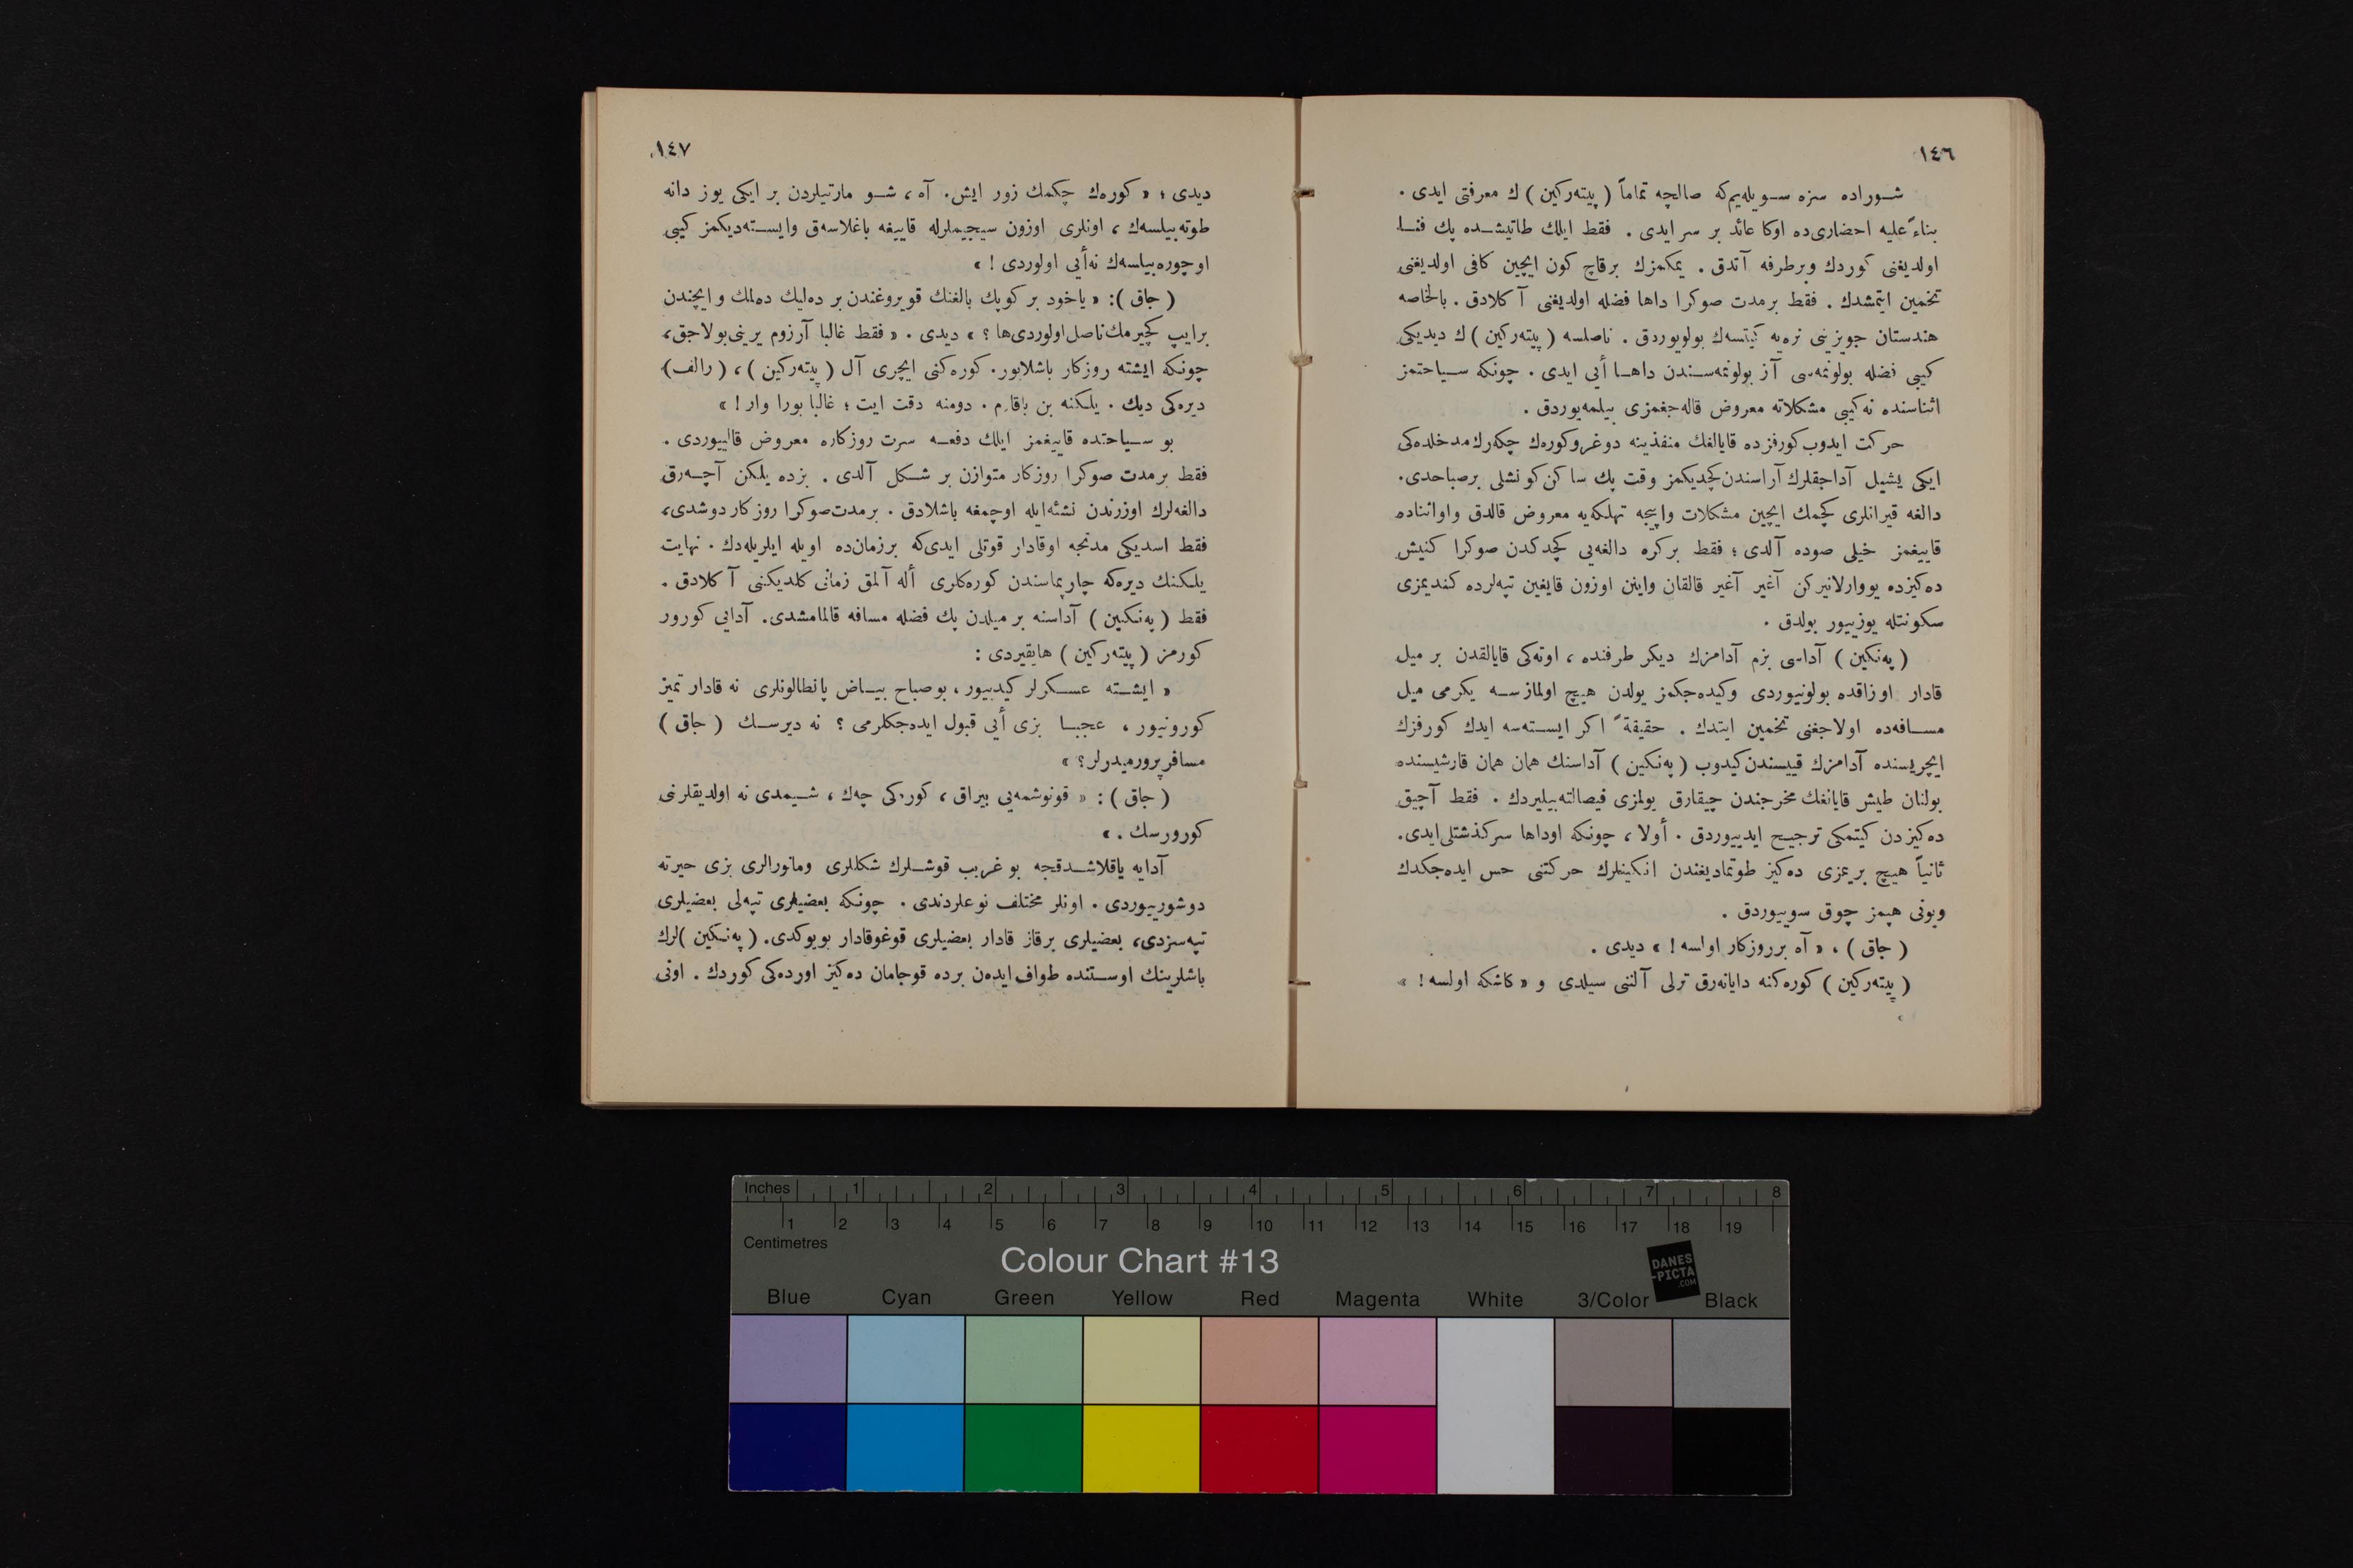 ١٤٦
شوراده سزه سویله‌یم‌که صالچه تماماً (پیته‌رکین) ك معرفتی ایدی .
بناءً علیه احضاری‌ده اوکا عائد بر سر ایدی . فقط ایلك طاتیشده پك فنا
اولدیغنی کوردك وبرطرفه آتدق . یمکمزك برقاچ کون ایچین کافی اولدیغنی
تخمین ایتمشدك . فقط برمدت صوکرا داها فضله اولدیغنی آکلادق . بالخاصه
هندستان جویزینی نره‌یه کیتسه‌ك بولویوردق . ناصلسه (پیته‌رکین) ك دیدیکی
کیبی فضله بولونمه‌سی آز بولونمه‌سندن داها أیی ایدی . چونکه سیاحتمز
اثناسنده نه‌کیبی مشکلاته معروض قاله‌جغمزی بیلمه‌یوردق .
حرکت ایدوب کورفزده قایالغك منفذینه دوغرو کوره‌ك چکه‌رك مدخلده‌کی
ایکی یشیل آداجقلرك آراسندن کچدیکمز وقت پك ساکن کونشلی برصباحدی.
دالغه قیرانلری کچمك ایچین مشکلات واییجه تهلکه‌یه معروض قالدق واواثناده
قاییغمز خیلی صوده آلدی ؛ فقط برکره دالغه‌یی کچدکدن صوکرا کنیش
ده‌کیزده یووارلانیرکن آغیر آغیر قالقان واینن اوزون قایغین تپه‌لرده کندیمزی
سکونتله یوزییور بولدق .
(په‌نکین) آداسی بزم آدامزك دیکر طرفنده ، اوته‌کی قایالقدن بر میل
قادار اوزاقده بولونیوردی وکیده‌جکمز یولدن هیچ اولمازسه یکرمی میل
مسافه‌ده اولاجغنی تخمین ایتدك . حقیقةً اکر ایسته‌سه ایدك کورفزك
ایچریسنده آدامزك قییسندن کیدوب (په‌نکین) آداسنك همان همان قارشیسنده
بولنان طیش قایانغك مخرجندن چیقارق یولمزی قیصالته‌بیلیردك . فقط آچیق
ده‌کیزدن کیتمکی ترجیح ایدییوردق . أولا ، چونکه اوداها سرکذشتلی‌ایدی.
ثانیاً هیچ بریمزی ده‌کیز طوتمادیغندن انکینلرك حرکتنی حس ایده‌جکدك
وبونی هپمز چوق سوییوردق .
(جاق) ، « آه برروزکار اولسه ! » دیدی .
(پیته‌رکین) کوره‌کنه دایانه‌رق ترلی آلننی سیلدی و « کاشکه اولسه ! »
١٤٧
دیدی ؛ « کوره‌ك چکمك زور ایش . آه ، شو مارتیلردن بر ایکی یوز دانه
طوته‌بیلسه‌ك ، اونلری اوزون سیجیملرله قاییغه باغلاسه‌ق وایسته‌دیکمز کیبی
اوچوره‌بیلسه‌ك نه‌أیی اولوردی ! »
(جاق) : « یاخود بر کوپك بالغنك قویروغندن بر ده‌لیك ده‌لمك و ایچندن
برایپ کچیرمك ناصل اولوردی‌ها ؟ » دیدی . « فقط غالبا آرزوم یرینی بولاجق،
چونکه ایشته روزکار باشلایور. کوره‌کنی ایچری آل (پیته‌رکین) ، (رالف)
دیره‌کی دیك . یلکنه بن باقارم . دومنه دقت ایت ؛ غالبا بورا وار ! »
بو سیاحتده قاییغمز ایلك دفعه سرت روزکاره معروض قالییوردی .
فقط برمدت صوکرا روزکار متوازن بر شکل آلدی . بزده یلکن آچه‌رق
دالغه‌لرك اوزرندن نشئه‌ایله اوچمغه باشلادق . برمدت‌صوکرا روزکار دوشدی،
فقط اسدیکی مدتجه اوقادار قوتلی ایدی‌که برزمان‌ده اویله ایلریله‌دك . نهایت
یلکنك دیره‌که چارپماسندن کوره‌کلری أله آلمق زمانی کلدیکنی آکلادق .
فقط (په‌نکین) آداسنه بر میلدن پك فضله مسافه قالمامشدی. آدایی کورور
کورمز (پیته‌رکین) هایقیردی :
« ایشته عسکرلر کیدییور ، بوصباح بیاض پانطالونلری نه قادار تمیز
کورونیور ، عجبا بزی أیی قبول ایده‌جکلرمی ؟ نه دیرسك (جاق)
مسافرپرورمیدرلر؟ »
(جاق) : « قونوشمه‌یی بیراق ، کوره‌کی چه‌ك ، شیمدی نه اولدیقلرنی
کورورسك . »
آدایه یاقلاشدقجه بو غریب قوشلرك شکللری ومانورالری بزی حیرته
دوشورییوردی . اونلر مختلف نوعلردندی . چونکه بعضیلری تپه‌لی بعضیلری
تپه‌سزدی، بعضیلری برقاز قادار بعضیلری قوغوقادار بویوکدی. (په‌نکین)لرك
باشلرینك اوستنده طواف ایده‌ن برده قوجامان ده‌کیز اورده‌کی کوردك . اونی
Inches 1 2 3 4 5 6 7 8
1 2 3 4 5 6 7 8 9 10 11 12 13 14 15 16 17 18 19
Centimetres
Colour Chart #13
DANES
-PICTA
.COM
Blue Cyan Green Yellow Red Magenta White 3/Color Black